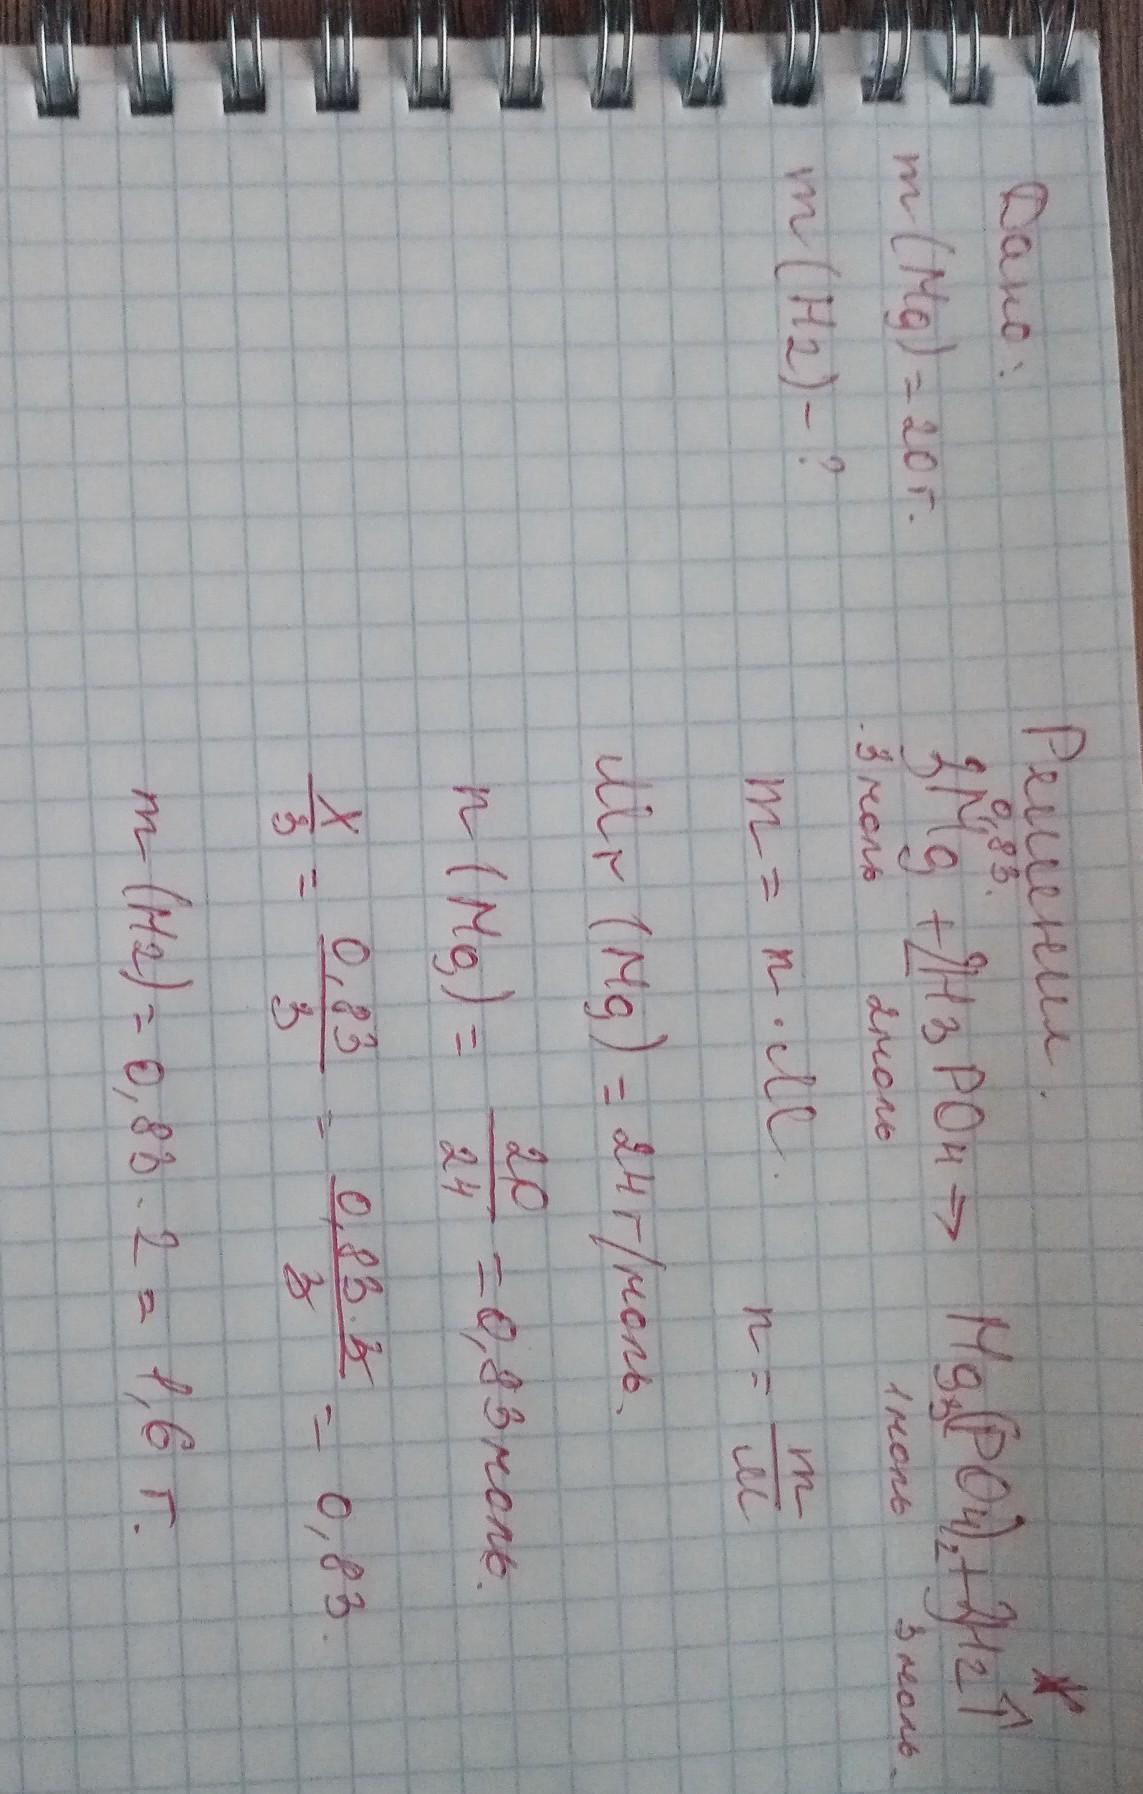 Дано:
m(Mg) = 20 г.
m(H2) - ?
Решение.
0,83. x
3Mg + 2H3PO4 → Mg3(PO4)2 + 3H2↑
3 моль 2 моль 1 моль 3 моль.
m = n · M. n = m/M
Mr (Mg) = 24 г/моль.
n (Mg) = 20/24 = 0,83 моль.
x/3 = 0,83/3 = 0,83·3/3 = 0,83.
m (H2) = 0,83 · 2 = 1,6 г.